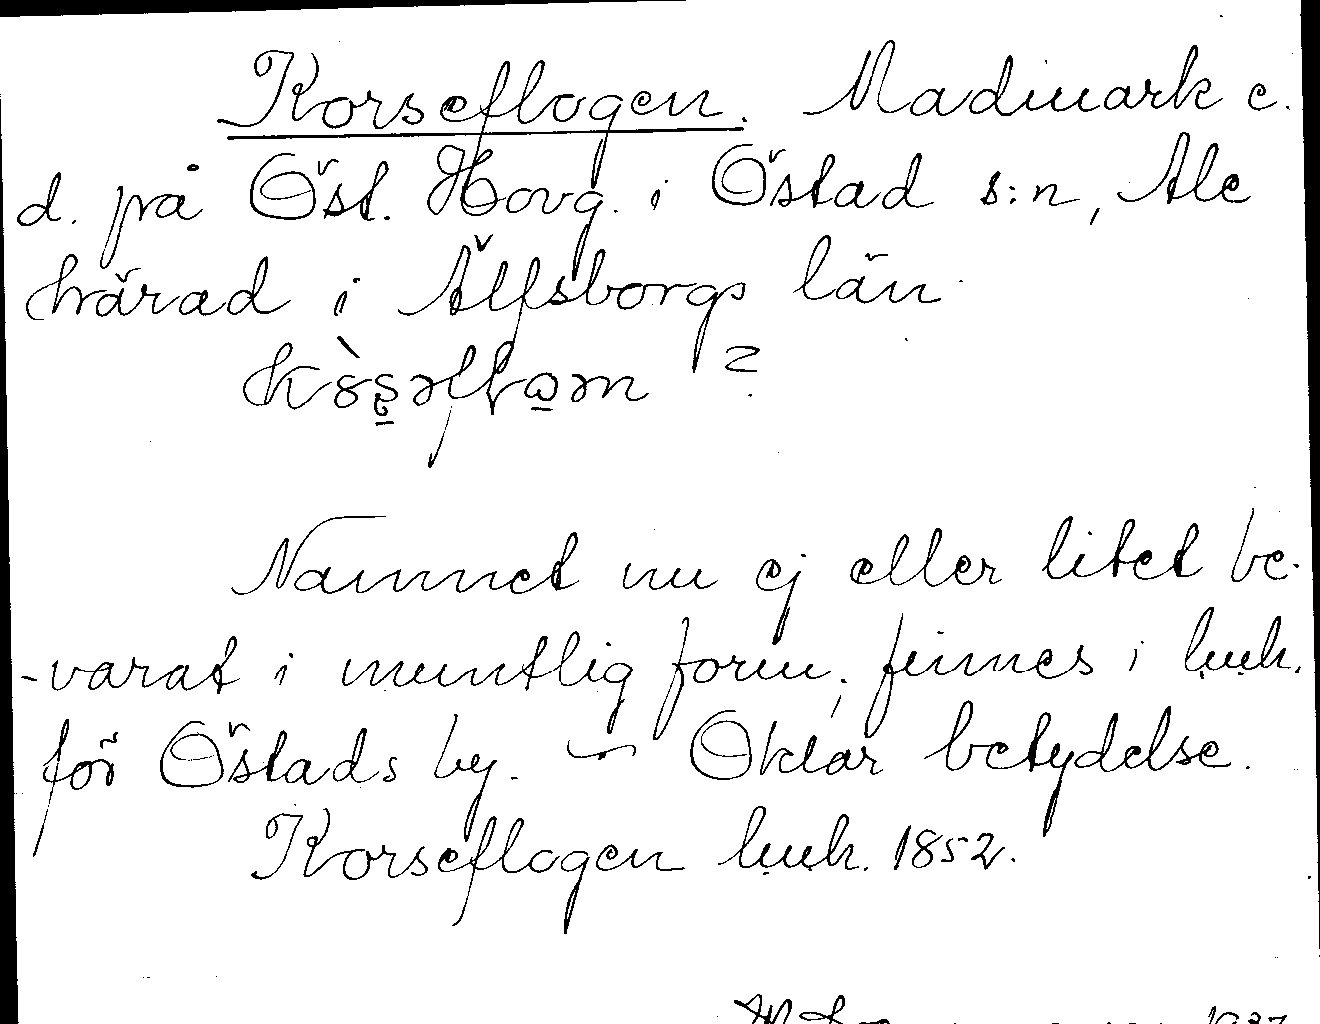 Korseflogen. Madmark e.
d. på Öst. Hovg. i Östad s:n, Ale
härad i Älfsborgs län
?
Namnet nu ej eller litet be-
-varat i muntlig form; finnes i lmh.
för Östads by. – Oklar betydelse.
Korseflogen lmh. 1852.